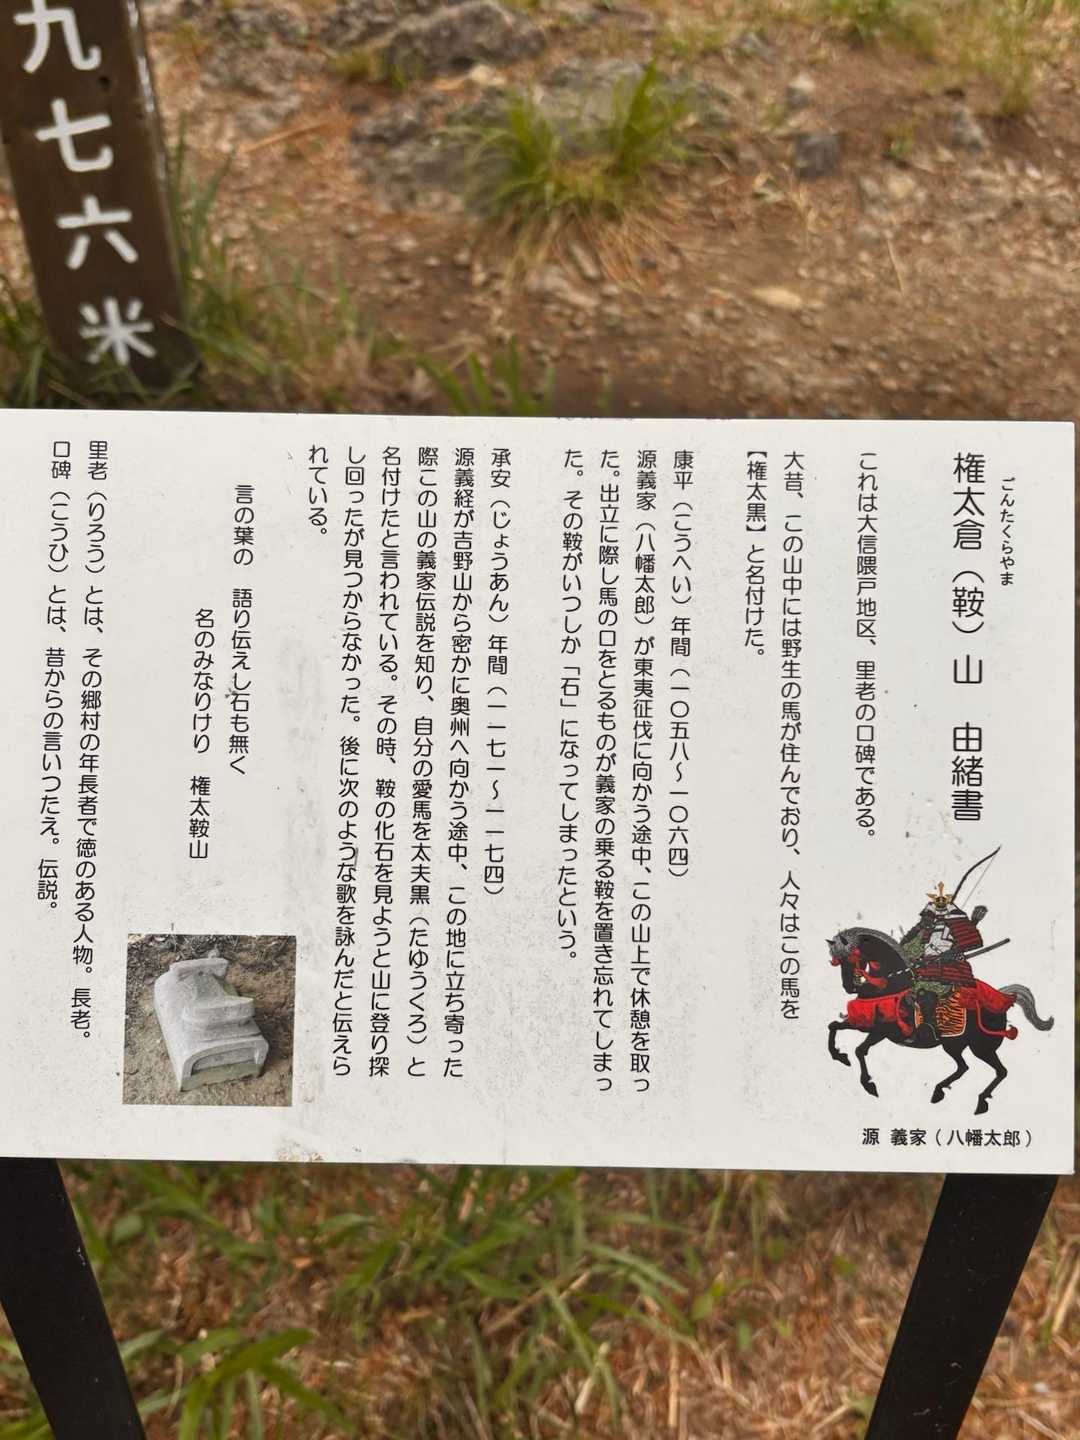 九七六米
ごんたくらやま
権太倉（鞍）山　由緒書
これは大信隈戸地区、里老の口碑である。
大昔、この山中には野生の馬が住んでおり、人々はこの馬を
【権太黒】と名付けた。
康平（こうへい）年間（一〇五八～一〇六四）
源義家（八幡太郎）が東夷征伐に向かう途中、この山上で休憩を取っ
た。出立に際し馬の口をとるものが義家の乗る鞍を置き忘れてしまっ
た。その鞍がいつしか「石」になってしまったという。
承安（じょうあん）年間（一一七一～一一七四）
源義経が吉野山から密かに奥州へ向かう途中、この地に立ち寄った
際この山の義家伝説を知り、自分の愛馬を太夫黒（たゆうくろ）と
名付けたと言われている。その時、鞍の化石を見ようと山に登り探
し回ったが見つからなかった。後に次のような歌を詠んだと伝えら
れている。
言の葉の　語り伝えし石も無く
名のみなりけり　権太鞍山
里老（りろう）とは、その郷村の年長者で徳のある人物。長老。
口碑（こうひ）とは、昔からの言いつたえ。伝説。
源 義家（八幡太郎）